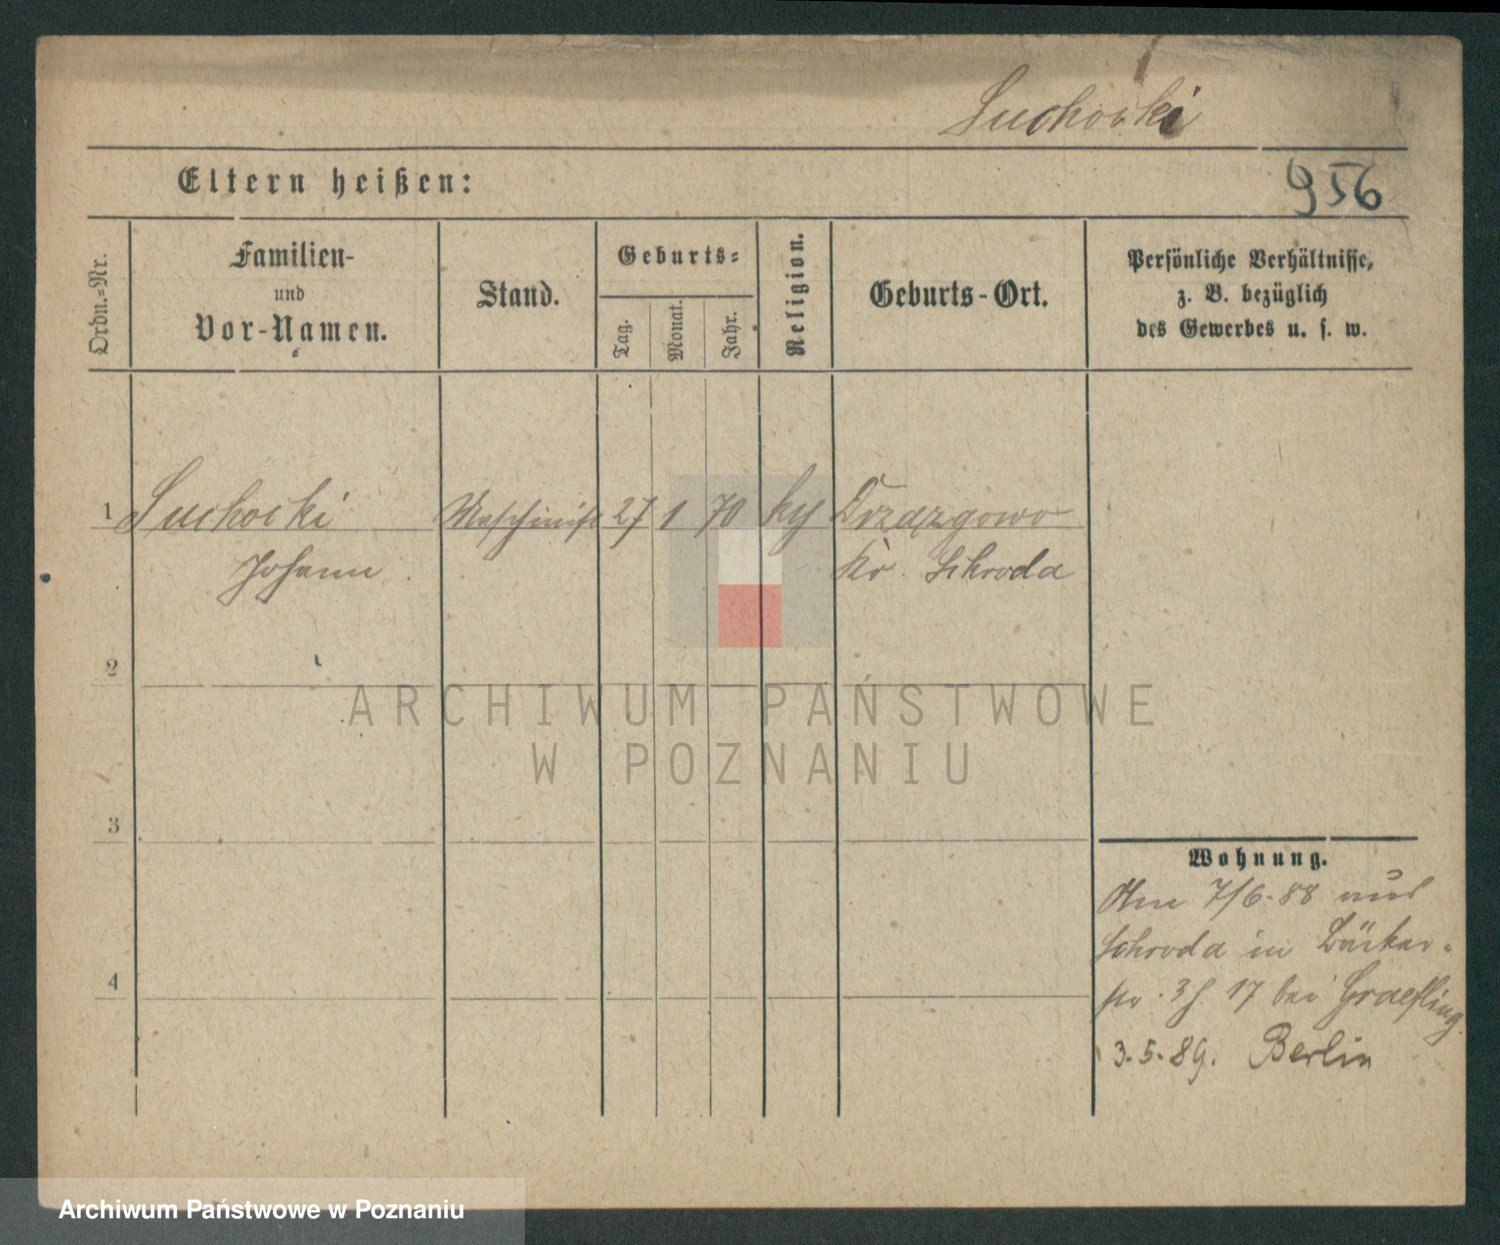 Suchocki
Eltern heißen:
956
Ordn.-Nr.
Familien-
und
Vor-Namen.
Stand.
Geburts-
Tag.
Monat.
Jahr.
Religion.
Geburts-Ort.
Persönliche Verhältnisse,
z. B. bezüglich
des Gewerbes u. s. w.
1 Suchocki Maschinist 27 1 70 Drzązgowo
Johann Kr. Schroda
2
ARCHIWUM PAŃSTWOWE
W POZNANIU
3
Wohnung.
7/6.88 aus
Schroda in Bäcker-
str. 17 bei Graefling
4
3.5.89. Berlin
Archiwum Państwowe w Poznaniu